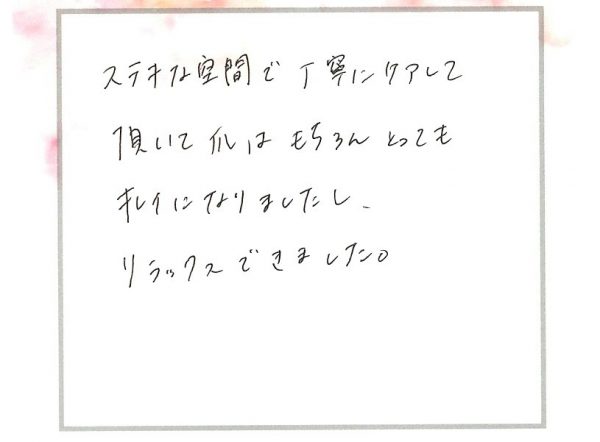 ステキな空間で丁寧にケアして
頂いて爪はもちろんとっても
キレイになりましたし、
リラックスできました。